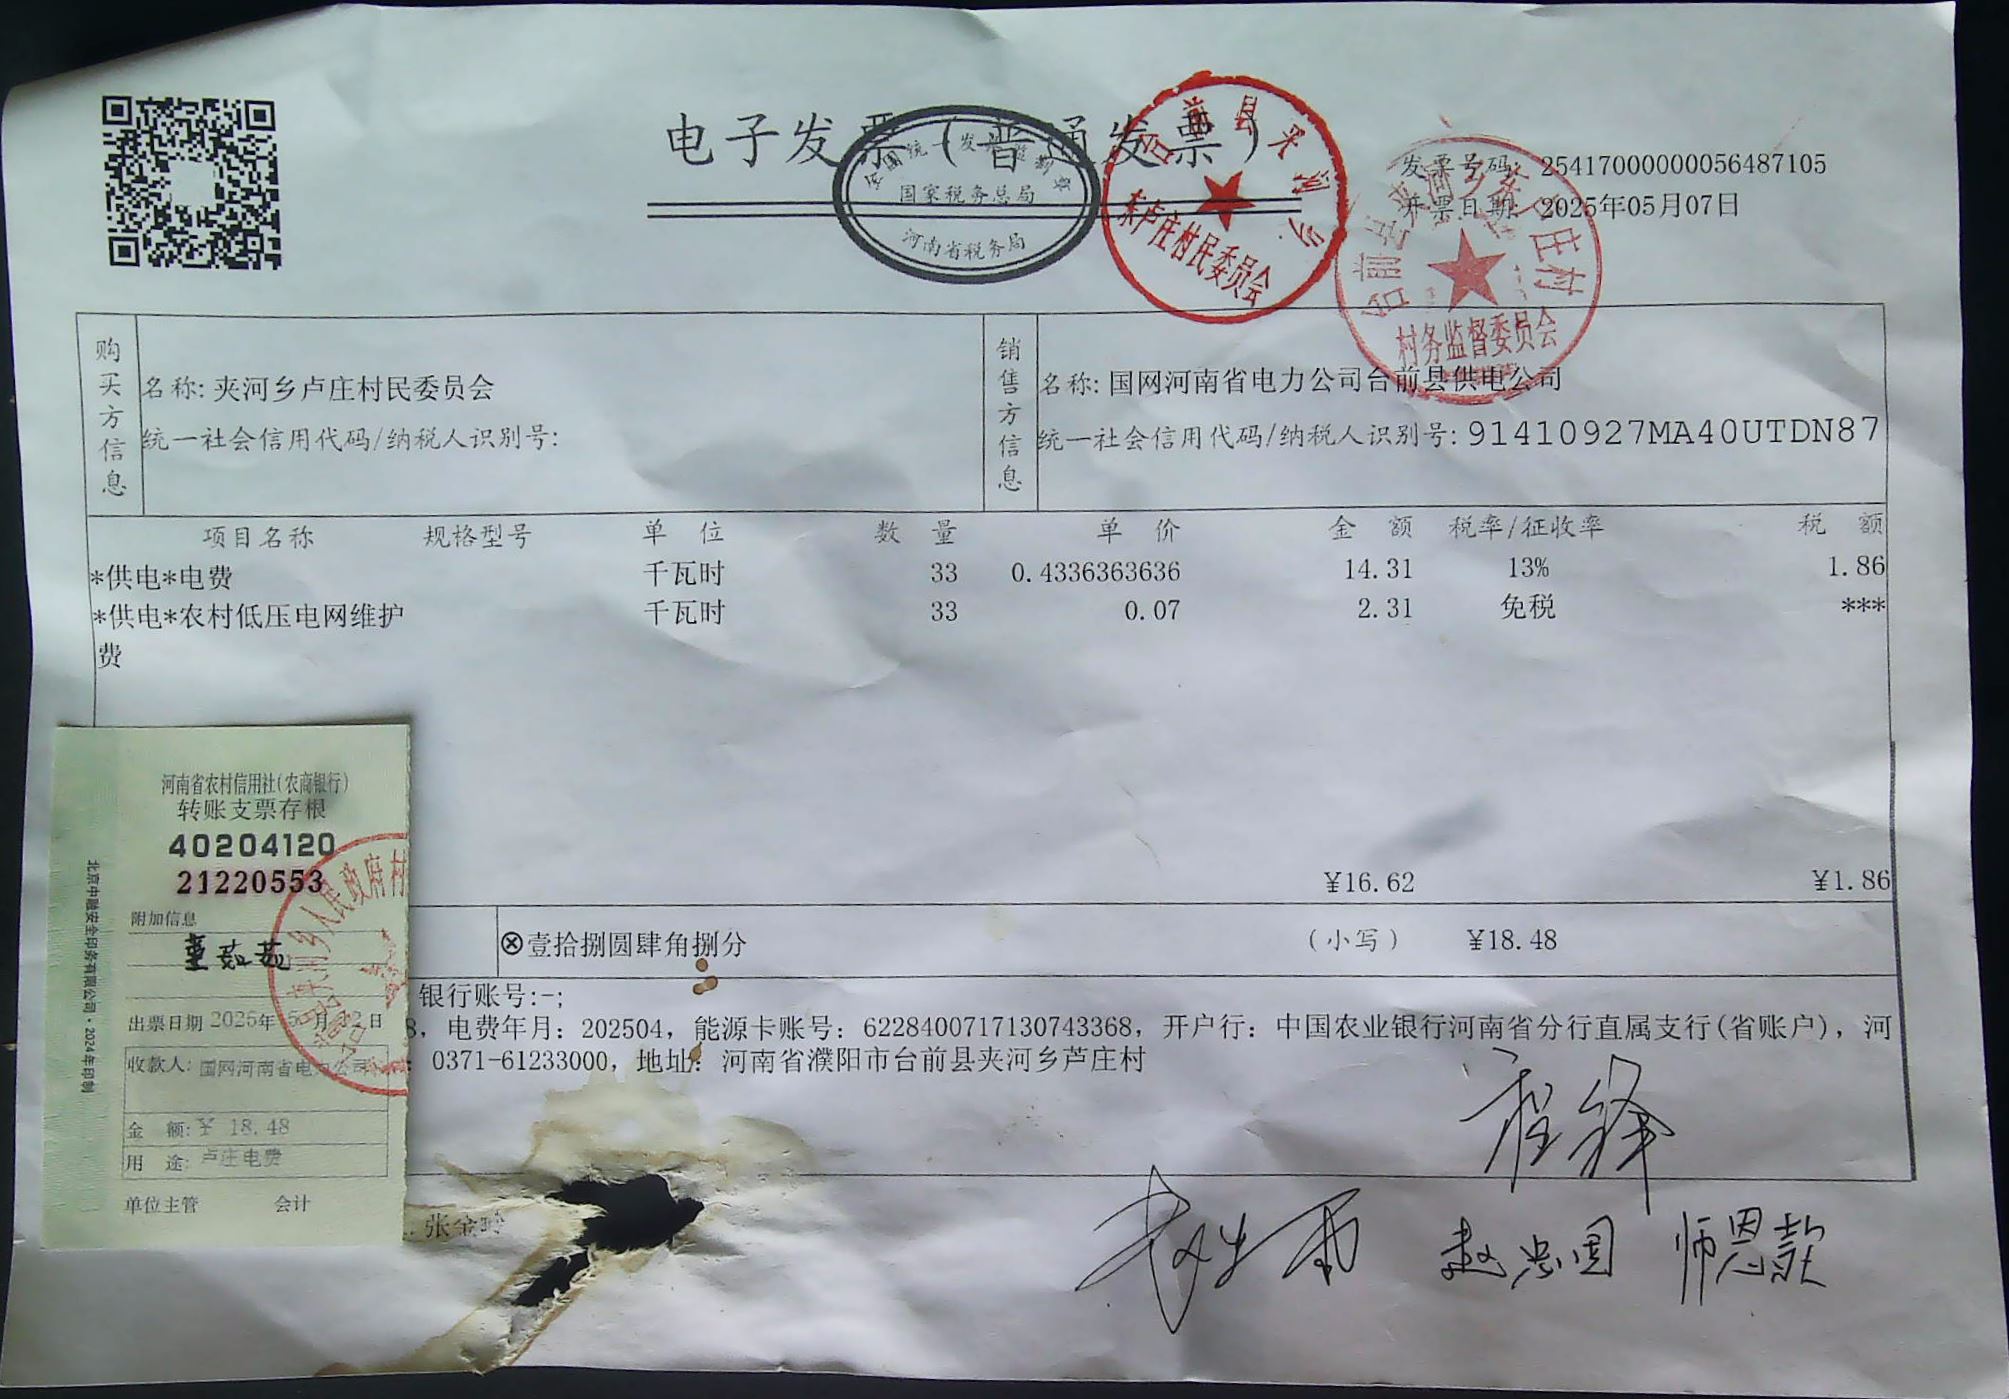 电子发票（普通发票）
全国统一发票监制章
国家税务总局
河南省税务局
台前县夹河乡
东卢庄村民委员会
发票号码：25417000000056487105
开票日期：2025年05月07日
村务监督委员会
购买方信息
名称：夹河乡卢庄村民委员会
统一社会信用代码/纳税人识别号：
销售方信息
名称：国网河南省电力公司台前县供电公司
统一社会信用代码/纳税人识别号：91410927MA40UTDN87
项目名称 规格型号 单位 数量 单价 金额 税率/征收率 税额
*供电*电费 千瓦时 33 0.4336363636 14.31 13% 1.86
*供电*农村低压电网维护 千瓦时 33 0.07 2.31 免税 ***
费
¥16.62 ¥1.86
ⓧ壹拾捌圆肆角捌分 （小写） ¥18.48
银行账号:-;
8, 电费年月: 202504, 能源卡账号: 6228400717130743368, 开户行: 中国农业银行河南省分行直属支行(省账户), 河
: 0371-61233000, 地址: 河南省濮阳市台前县夹河乡芦庄村
河南省农村信用社(农商银行)
转账支票存根
40204120
21220553
附加信息
北京中融安全印务有限公司·2024年印制
出票日期 2025年5月 日
收款人: 国网河南省电力公司
金 额: ¥ 18.48
用 途: 卢庄电费
单位主管 会计
张金玲
赵忠国 师恩款